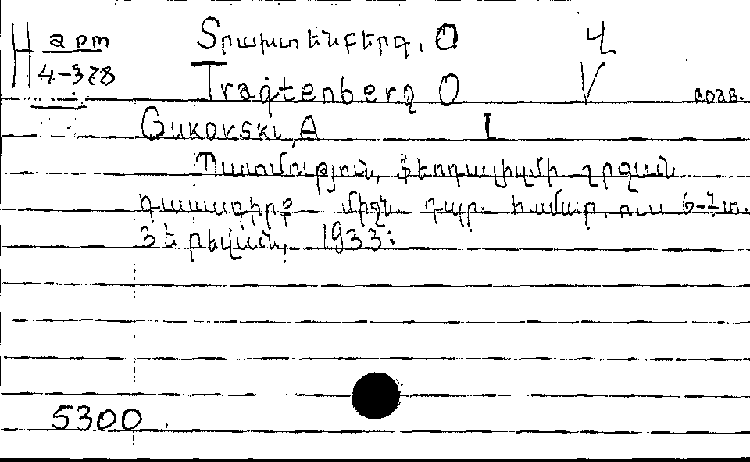 арм Տրախտենբերգ, Օ Վ
4-378 Tragtenberg O V созв.
Gukovski, A I
Պատմություն, Ֆեոդալիզմի շրջան
դասագիրք միջն. դպր. համար, ուս 6-7 տ.
Յերեվան, 1933:
5300